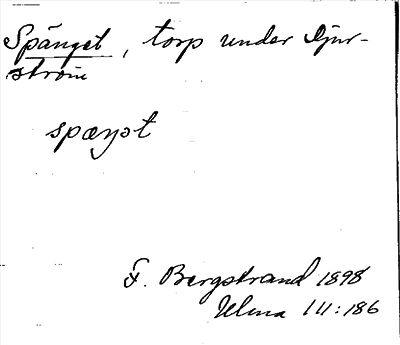 Spänget, torp under Djur-
ström
spæŋət
F. Bergstrand 1898
Ulma 111:186